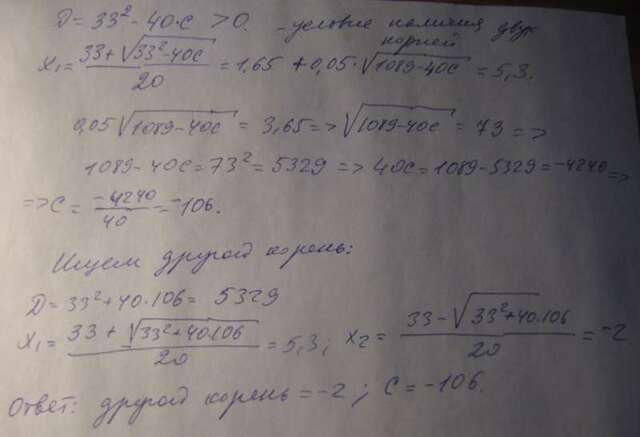 D = 33² - 40·c > 0. - условие наличия двух корней
x₁ = (33 + √(33² - 40c))/20 = 1,65 + 0,05·√(1089 - 40c) = 5,3.
0,05√(1089 - 40c) = 3,65 => √(1089 - 40c) = 73 =>
1089 - 40c = 73² = 5329 => 40c = 1089 - 5329 = -4240 =>
=> c = -4240/40 = -106.
Ищем другой корень:
D = 33² + 40·106 = 5329
x₁ = (33 + √(33² + 40·106))/20 = 5,3; x₂ = (33 - √(33² + 40·106))/20 = -2
Ответ: другой корень = -2; c = -106.